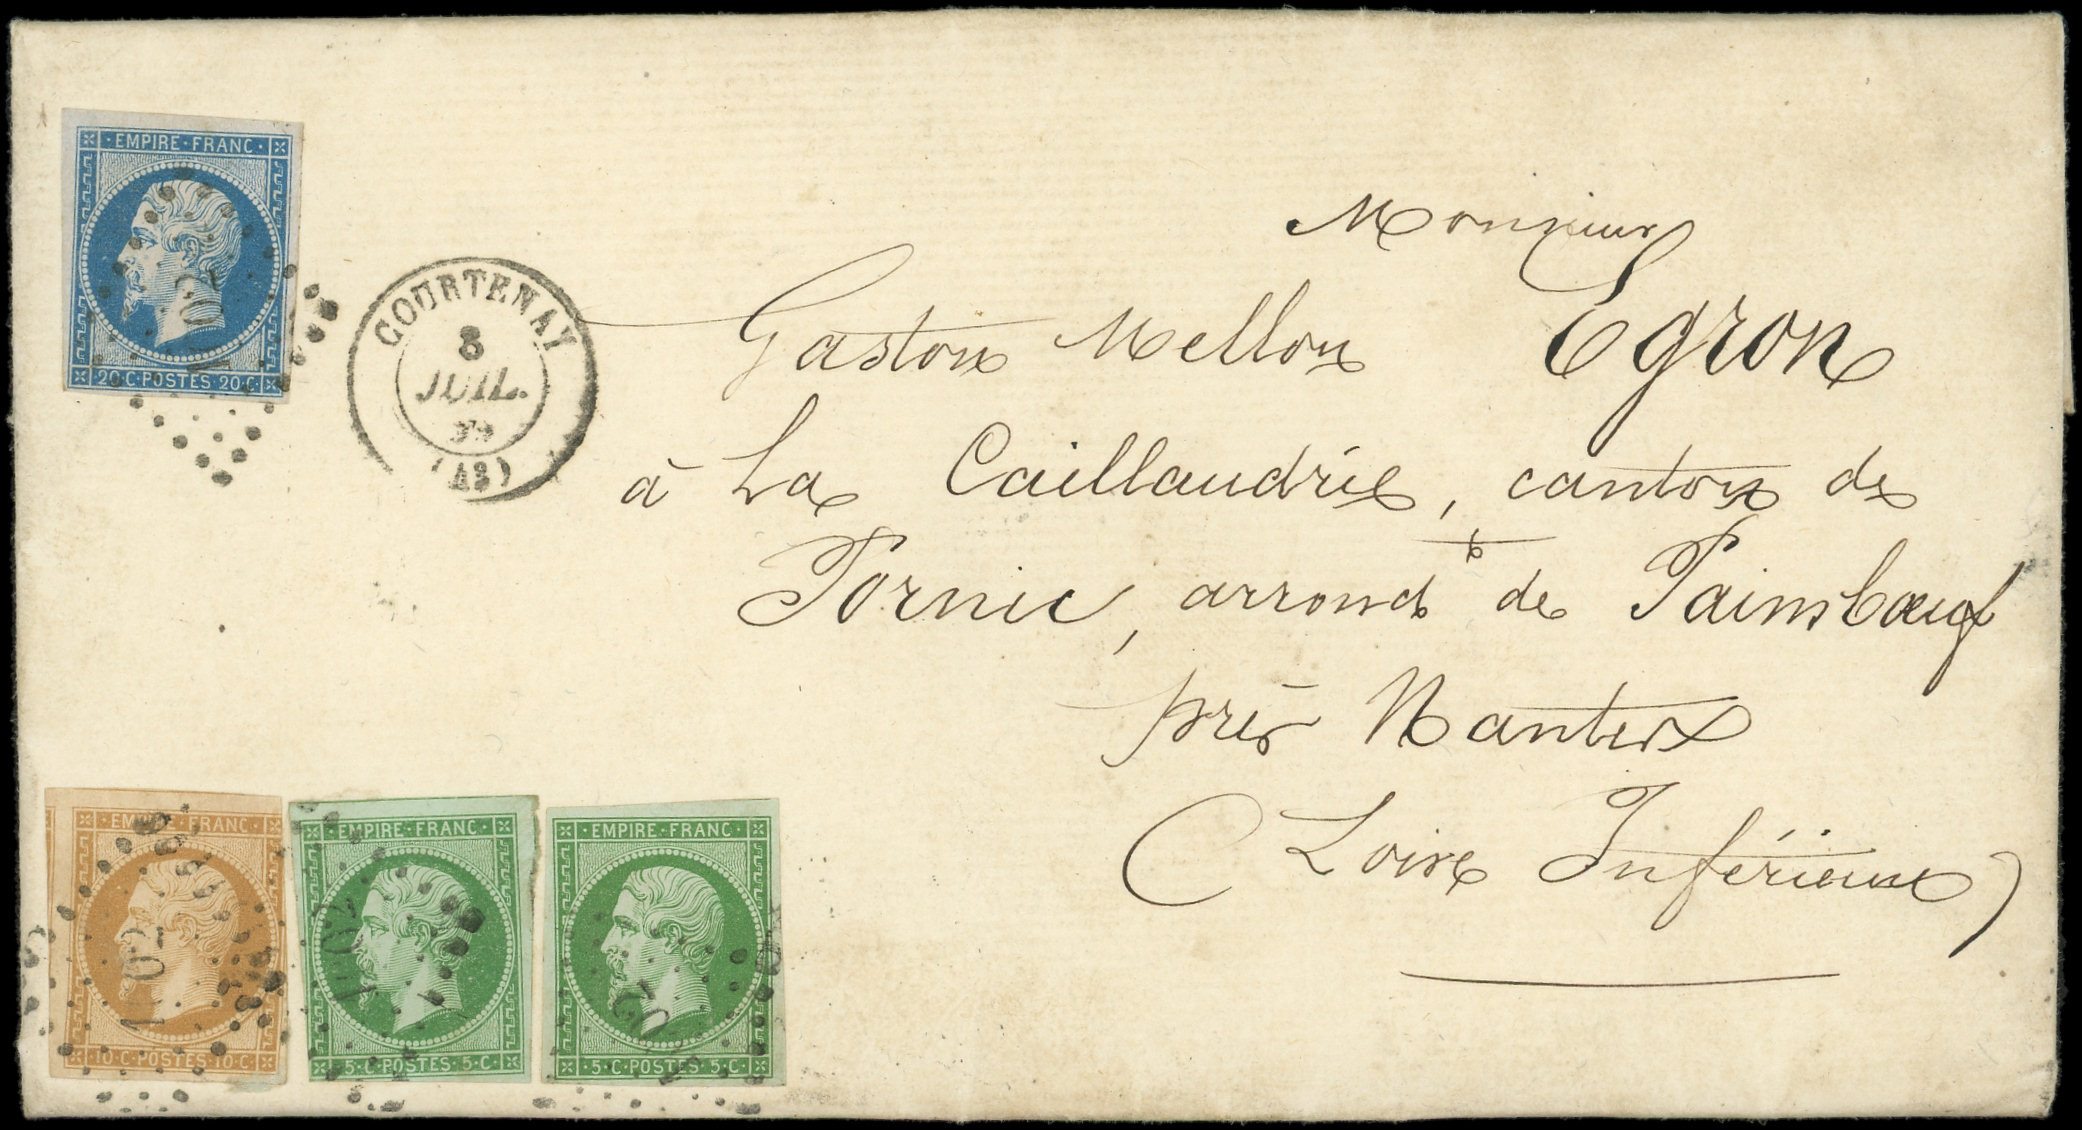 EMPIRE·FRANC·
20·C·POSTES·20·C·
COURTENAY
8
JUIL.
(43)
Monsieur
Gaston Mellon Egron
à La Caillaudrie, canton de
Pornic, arrond.t de Paimboeuf
près Nantes
(Loire Inférieure)
·EMPIRE·FRANC·
1102
·10·C·POSTES·10·C·
·EMPIRE·FRANC·
1102
·5·C·POSTES·5·C·
·EMPIRE·FRANC·
·5·C·POSTES·5·C·